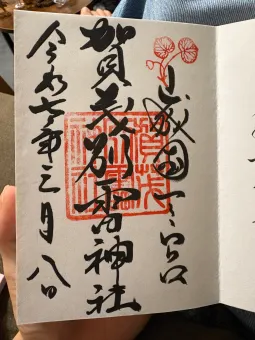 山城国一宮
賀茂別雷神社
令和七年三月八日